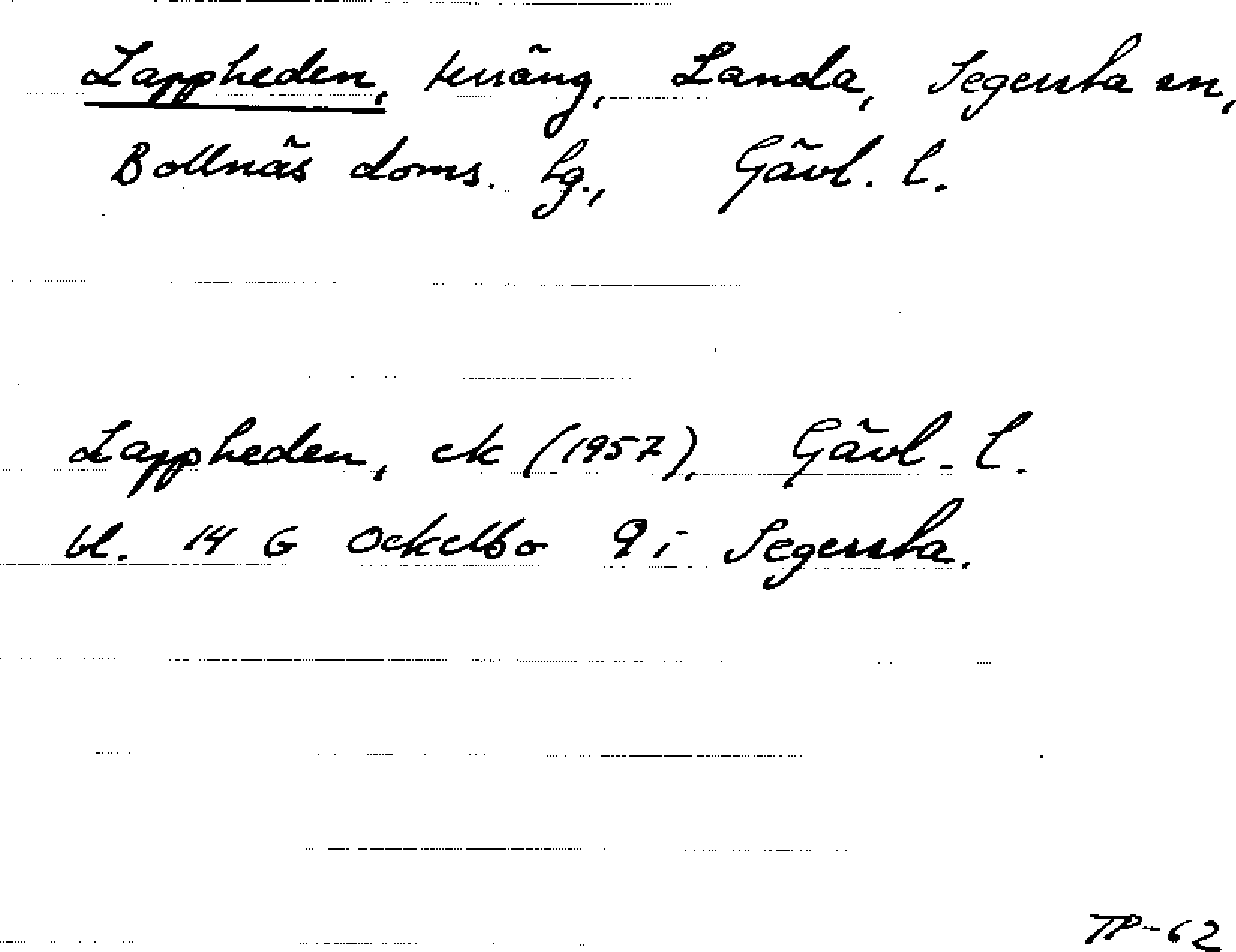 Lappheden, terräng, Landa, Segersta sn,
Bollnäs doms. lg., Gävl. l.
Lappheden, ek (1957). Gävl. l.
bl. 14 G Ockelbo 9 i Segersta.
TP-62